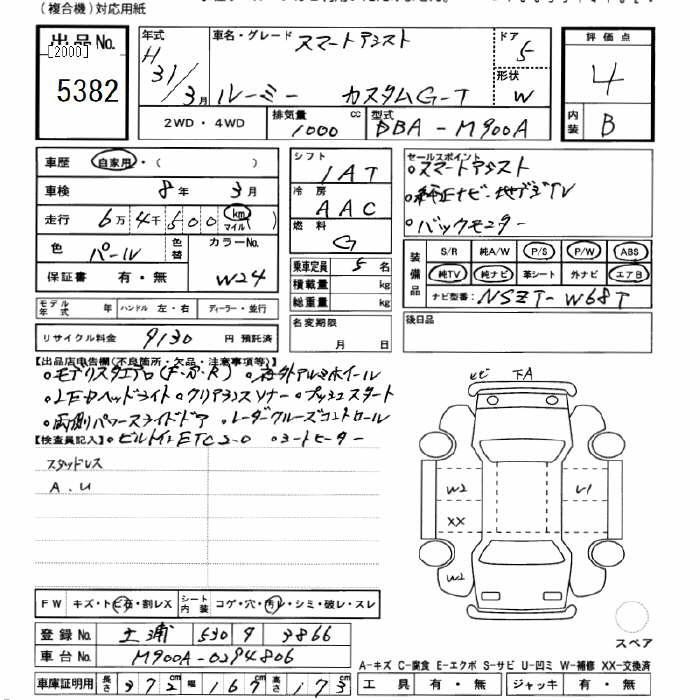 (複合機)対応用紙
出品No. [2000] 5382
年式 H31/3月
車名・グレード スマートアシスト
ルーミー カスタムG-T
ドア 5
形状 W
評価点 4
内装 B
2WD・4WD
排気量 1000 cc
型式 DBA-M900A
車歴 自家用・( )
車検 8年 3月
走行 6万4千500 km マイル ( )
色 パール 色替 カラーNo. W24
保証書 有・無
シフト IAT
冷房 AAC
燃料 G
乗車定員 5名
積載量 kg
総重量 kg
セールスポイント
・スマートアシスト
・純正ナビ・地デジTV
・バックモニター
装備品 S/R 純A/W P/S P/W ABS
純TV 純ナビ 革シート 外ナビ エアB
ナビ型番: NSZT-W68T
モデル年式 年 ハンドル 左・右 ディーラー・並行
リサイクル料金 9130 円 預託済
名変期限 月 日
後日品
【出品店申告欄(不良箇所・欠品・注意事項等)】
・モデリスタエアロ(F・S・R) ・社外アルミホイール
・LEDヘッドライト・クリアランスソナー・プッシュスタート
・両側パワースライドドア ・レーダークルーズコントロール
【検査員記入】 ・ビルトインETC2.0 ・シートヒーター
スタッドレス
A.U
ヒビ 下A
W2 U1
XX
W2
スペア
FW キズ・トビ石・割レX シート内装 コゲ・穴・汚レ・シミ・破レ・スレ
登録No. 土浦 530 9 3866
車台No. M900A-0294806
車庫証明用 長さ 372cm 幅 167cm 高さ 173cm
A-キズ C-腐食 E-エクボ S-サビ U-凹ミ W-補修 XX-交換済
工具 有・無 ジャッキ 有・無